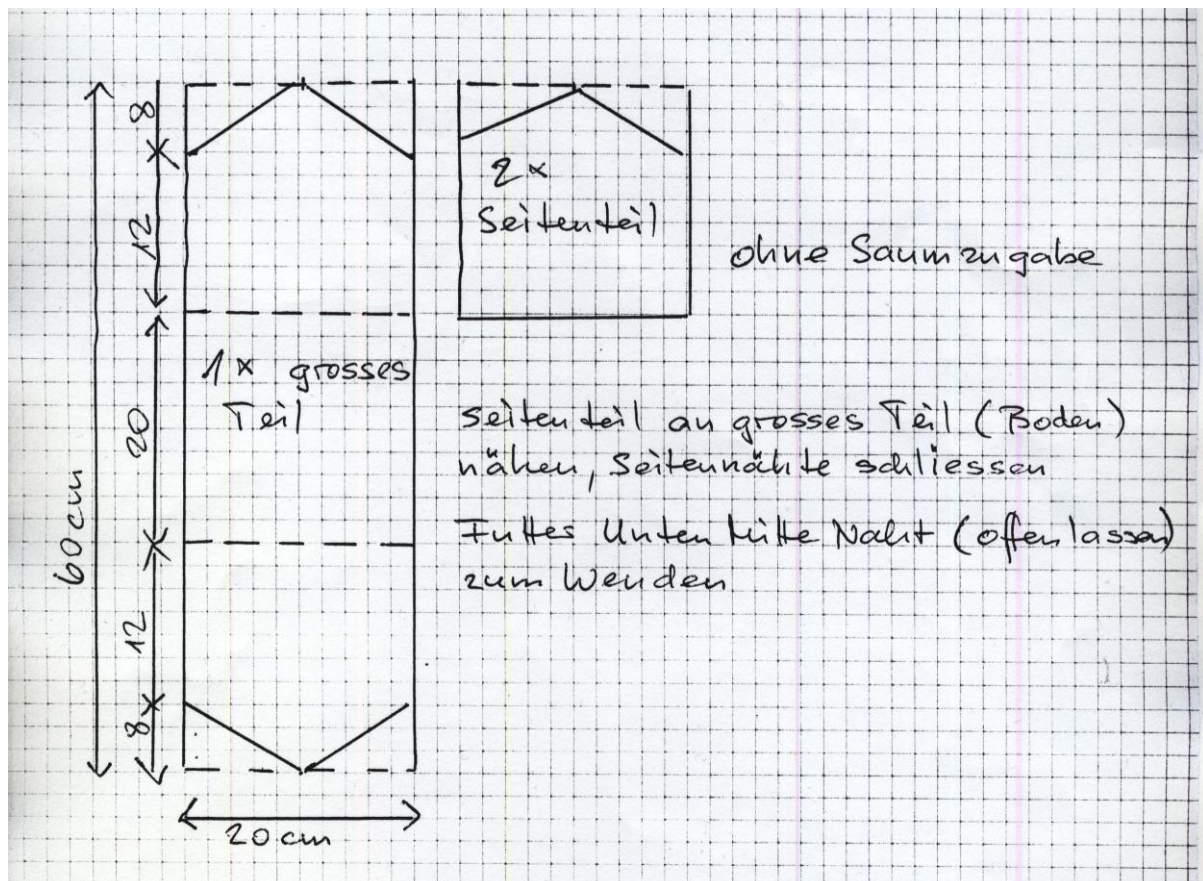 8
12
20
12
8
60cm
20cm
1x grosses
Teil
2x
Seitenteil
ohne Saumzugabe
Seitenteil an grosses Teil (Boden)
nähen, Seitennähte schliessen
Futter Unten Mitte Naht (offen lassen)
zum Wenden